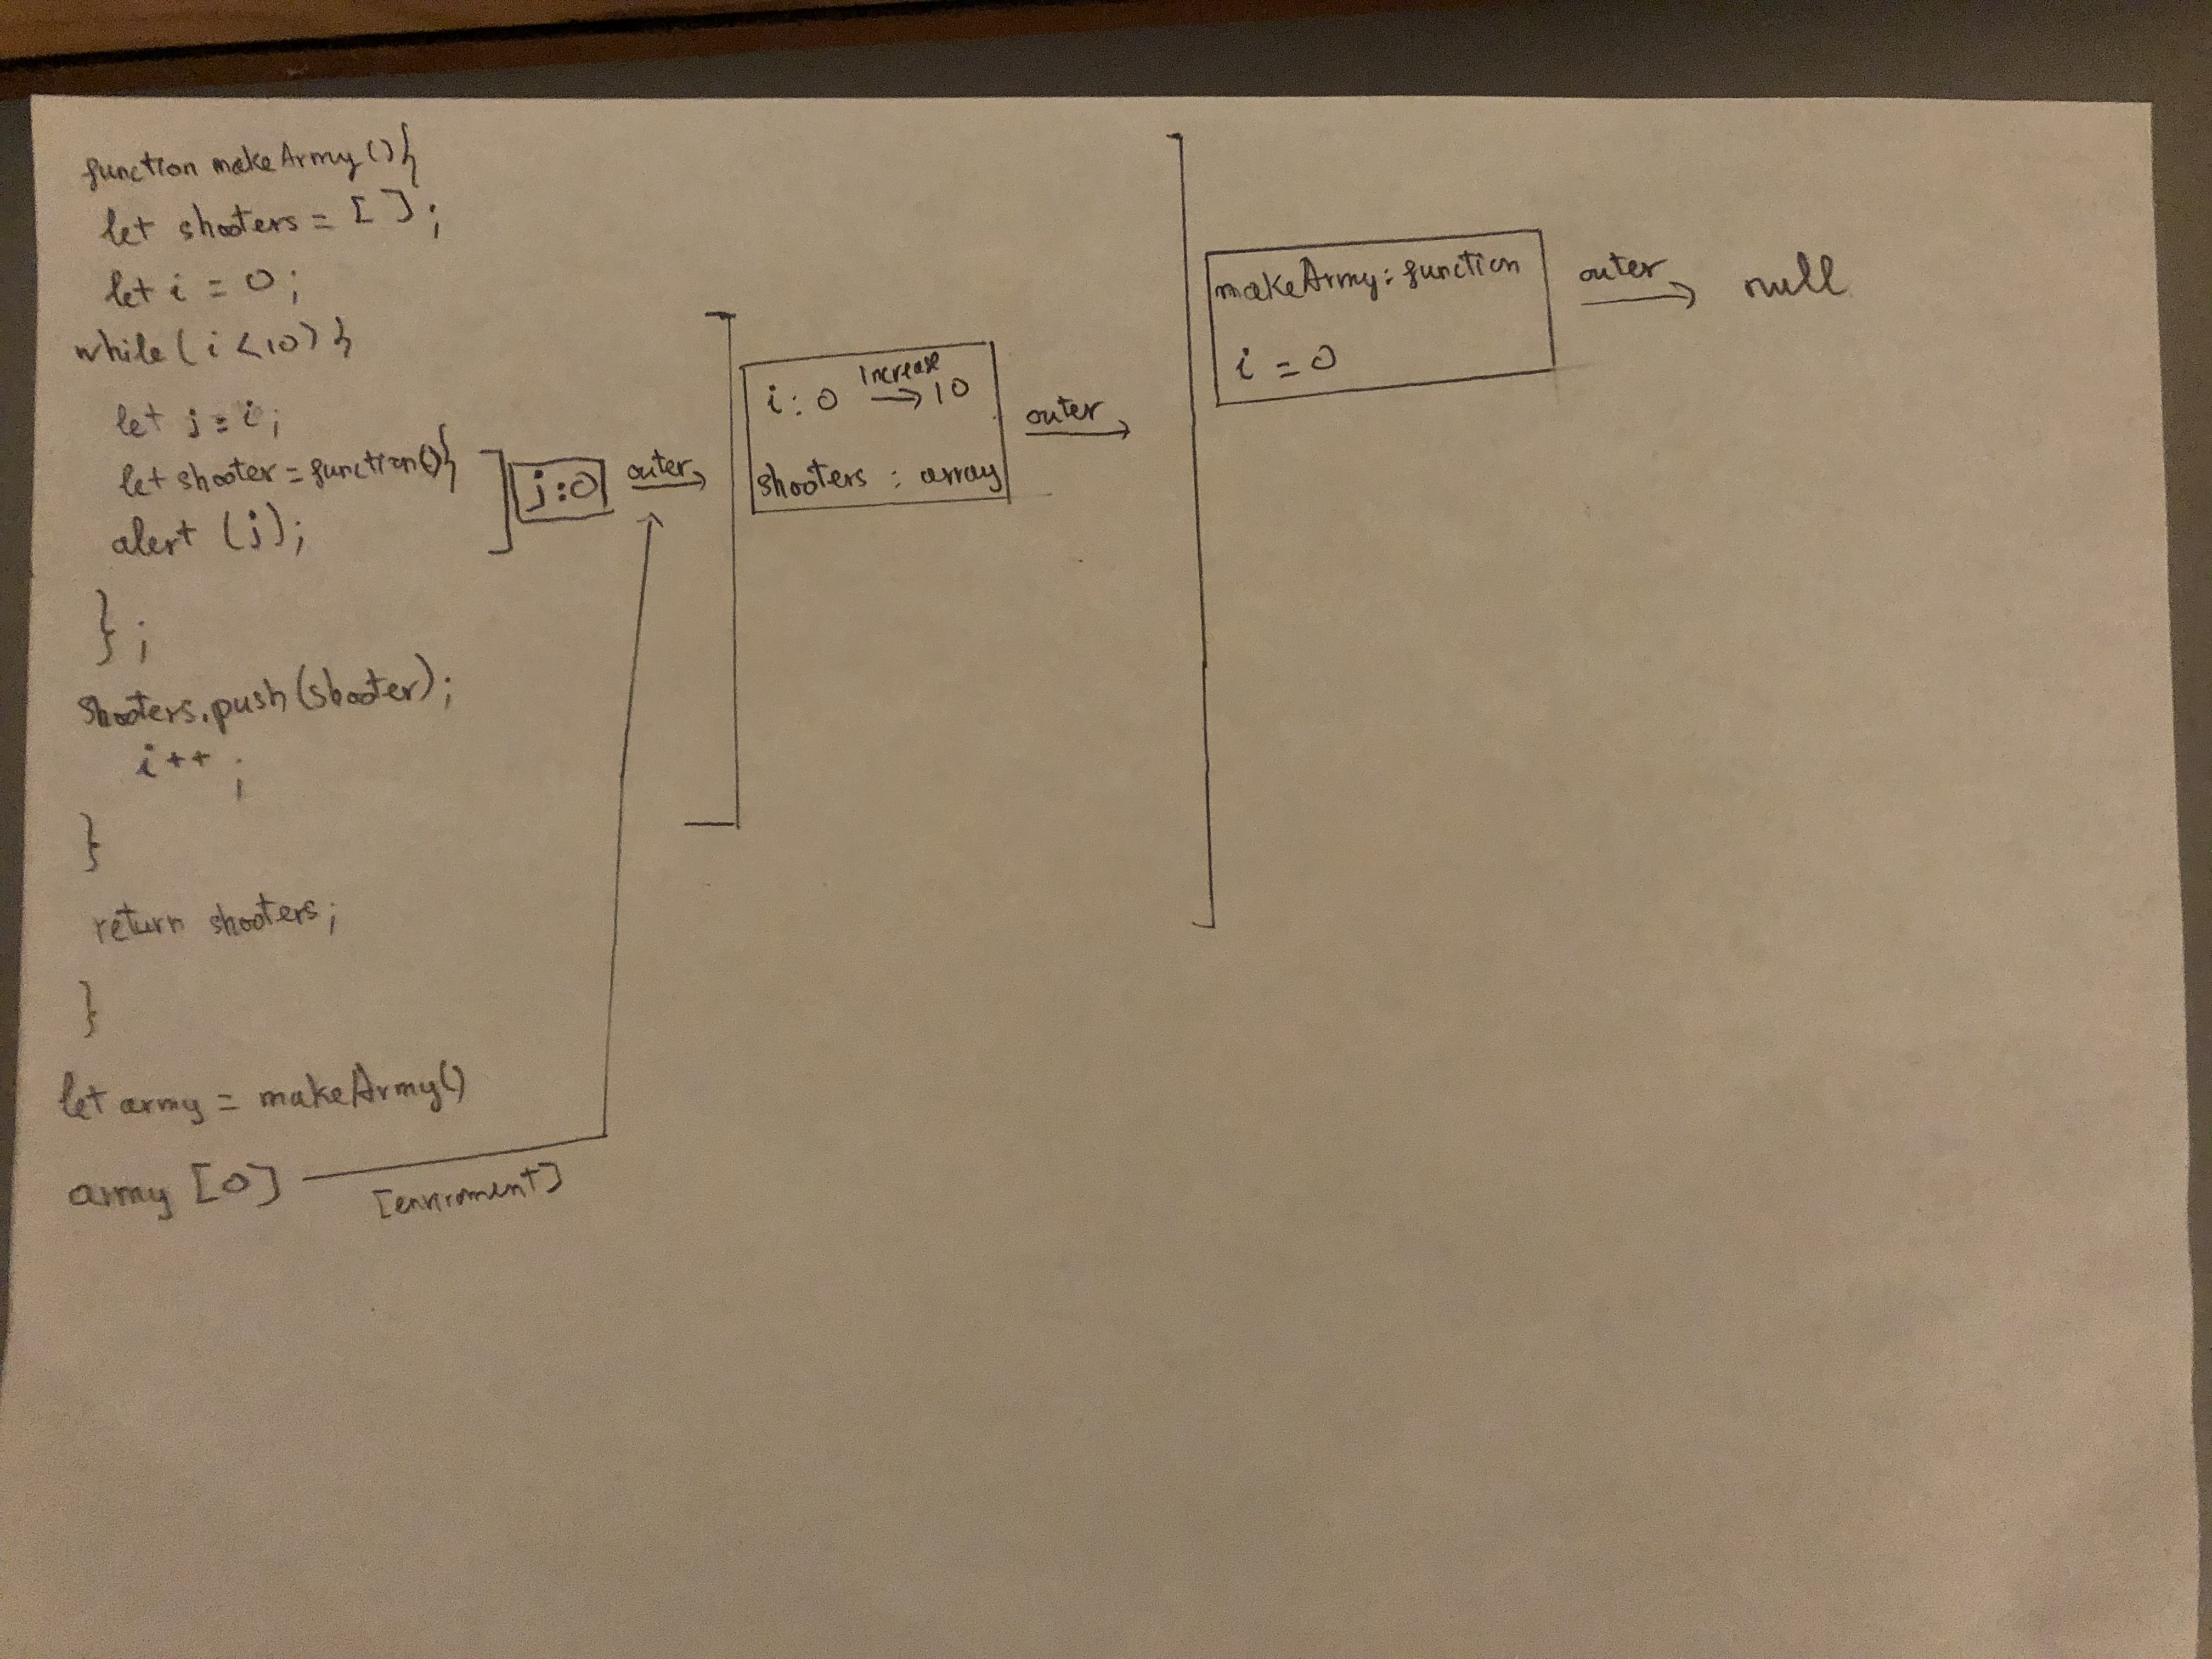 function makeArmy(){
let shooters = [ ];
let i = 0;
while(i<10){
let j = i;
let shooter = function(){
alert (j);
};
shooters.push(shooter);
i++;
}
return shooters;
}
let army = makeArmy()
army [0]
[enviroment]
j:0
outer
i : 0 Increase → 10
shooters : array
outer
makeArmy: function
i = 0
outer
null